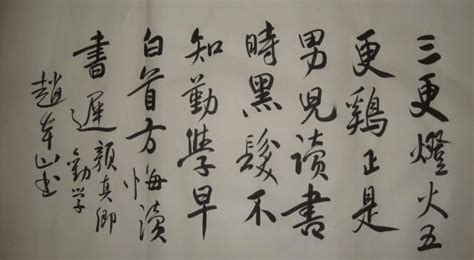 三更燈火五
更鷄正是
男兒讀書
時黑髮不
知勤學早
白首方悔讀
書遲
顏真卿
勤学
趙本山书